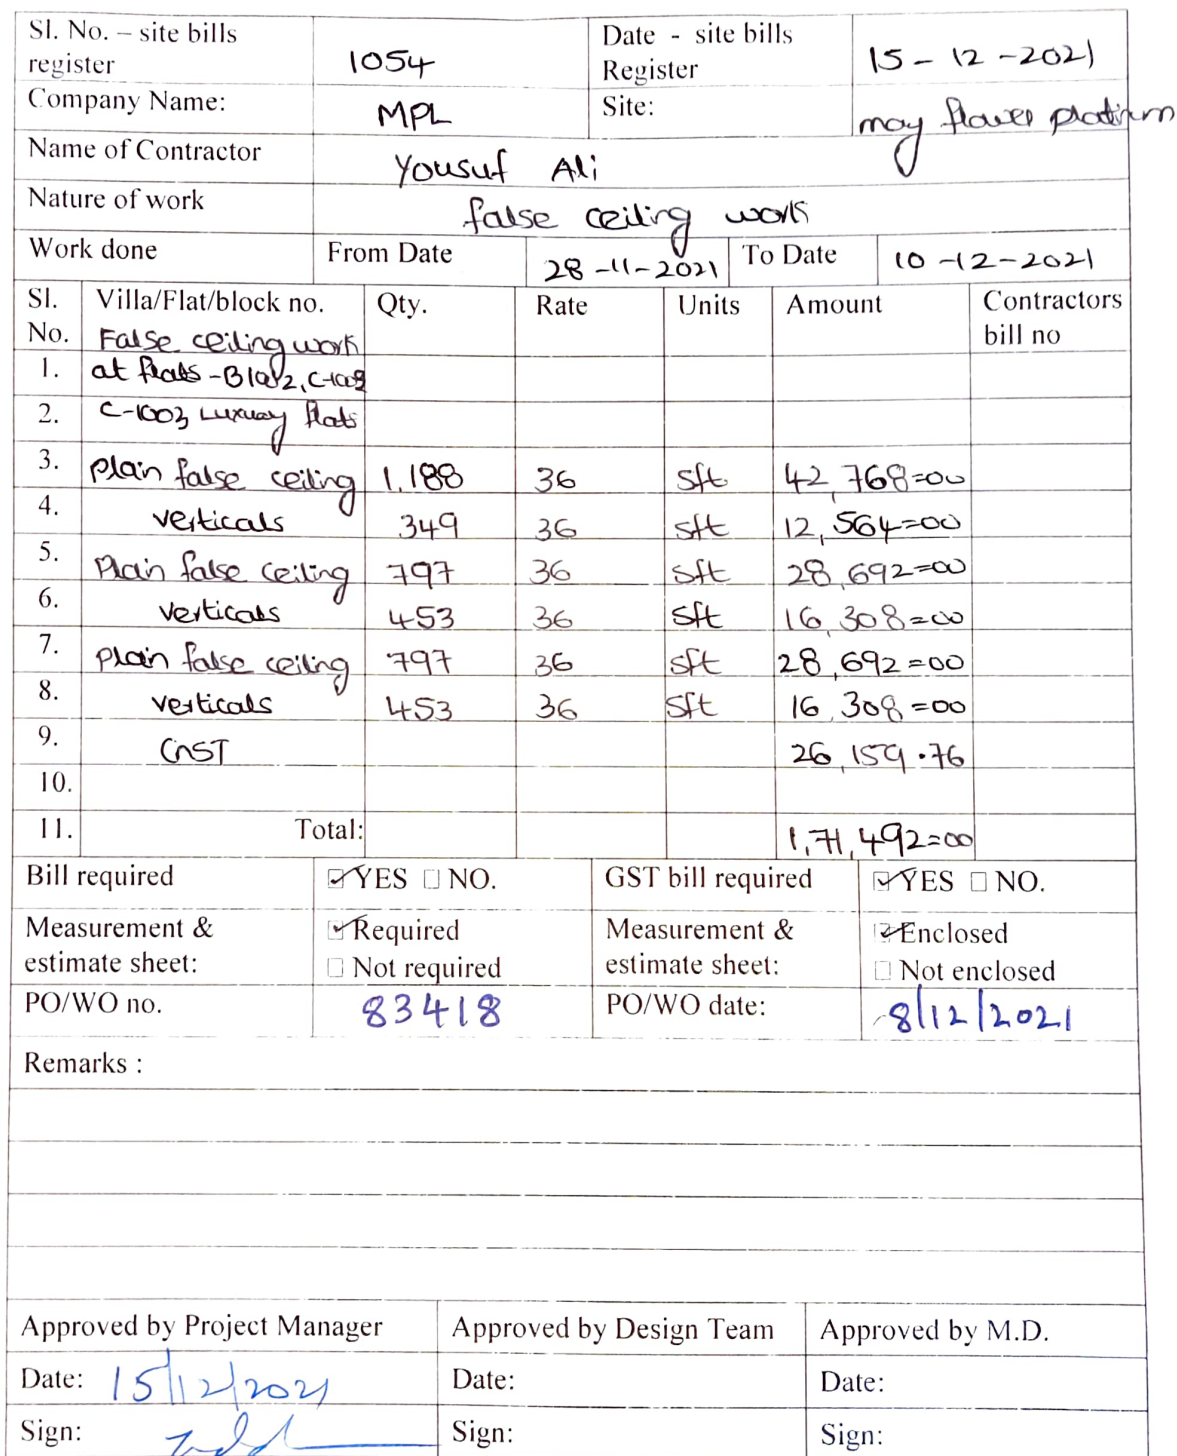 Sl. No. – site bills register 1054 Date - site bills Register 15-12-2021
Company Name: MPL Site: may flower platinum
Name of Contractor Yousuf Ali
Nature of work false ceiling work
Work done From Date 28-11-2021 To Date 10-12-2021
Sl. No. Villa/Flat/block no. Qty. Rate Units Amount Contractors bill no
False ceiling work
1. at flats -
2. C-1003 Luxuay flats
3. plain false ceiling 1,188 36 sft 42,768=00
4. verticals 349 36 sft 12,564=00
5. Plain false ceiling 797 36 sft 28,692=00
6. verticals 453 36 sft 16,308=00
7. plain false ceiling 797 36 sft 28,692=00
8. verticals 453 36 sft 16,308=00
9. GST 26,159.76
10.
11. Total: 1,71,492=00
Bill required ☑YES ☐ NO. GST bill required ☑YES ☐ NO.
Measurement & estimate sheet: ☑Required Measurement & estimate sheet: ☑Enclosed
☐ Not required ☐ Not enclosed
PO/WO no. 83418 PO/WO date: 8/12/2021
Remarks :
Approved by Project Manager Approved by Design Team Approved by M.D.
Date: 15/12/2021 Date: Date:
Sign: Sign: Sign: